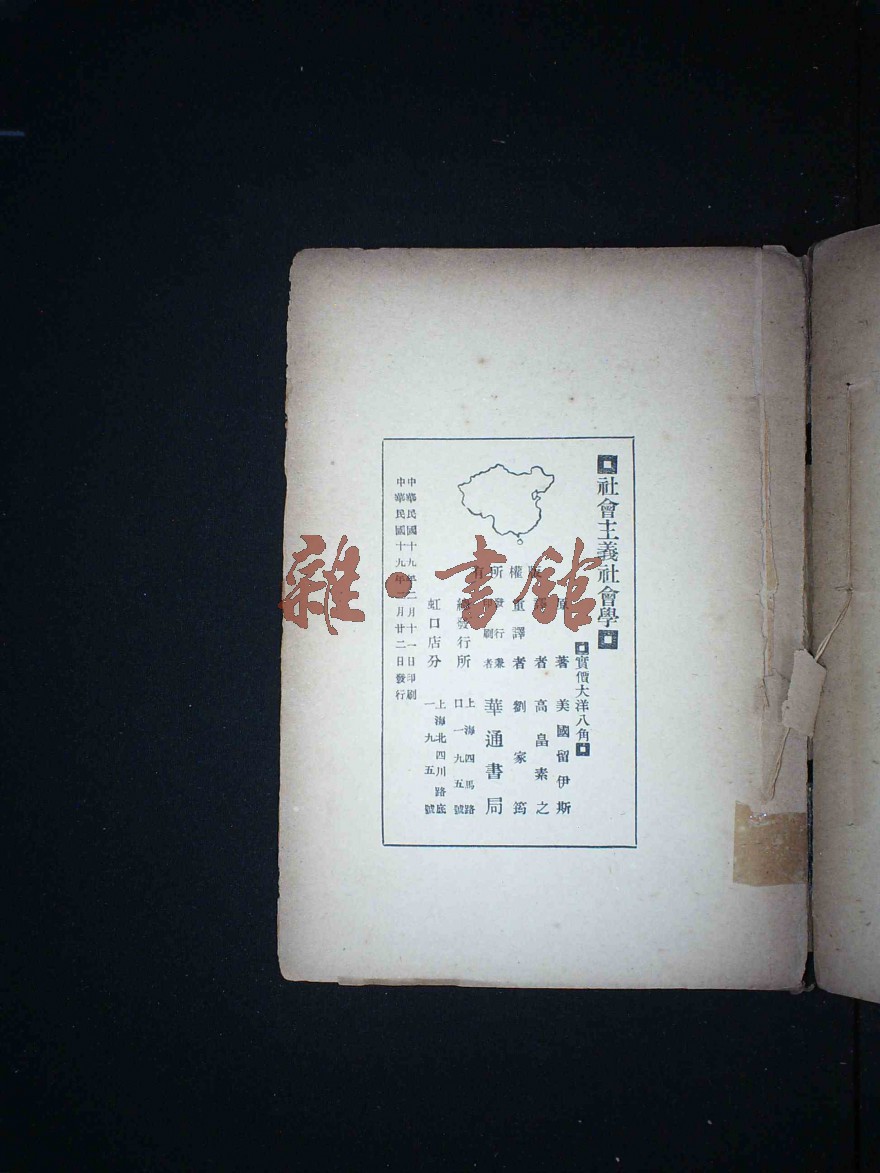 社會主義社會學
實價大洋八角
原著 美國留伊斯
譯者 高畠素之
重譯者 劉家筠
發行兼
印刷者
華通書局
總發行所
上海四馬路
口一九五號
虹口店分
上海北四川路底
一九五號
版權所有
中華民國十九年二月十一日印刷
中華民國十九年二月廿二日發行
雜·書館